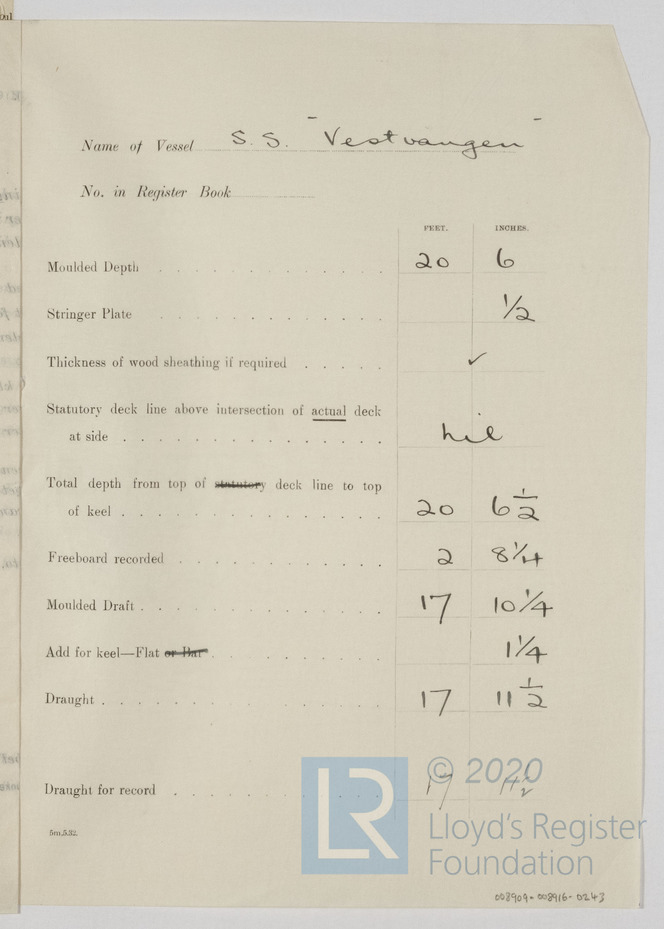 Name of Vessel S.S. "Vestvangen"
No. in Register Book
FEET. INCHES.
Moulded Depth 20 6
Stringer Plate 1/2
Thickness of wood sheathing if required ✓
Statutory deck line above intersection of actual deck
at side nil
Total depth from top of statutory deck line to top
of keel 20 6 1/2
Freeboard recorded 2 8 1/4
Moulded Draft 17 10 1/4
Add for keel—Flat or Bar 1 1/4
Draught 17 11 1/2
© 2020
Draught for record 17 11 1/2
LR
Lloyd's Register
Foundation
5m,5,32.
008909-008916-0243